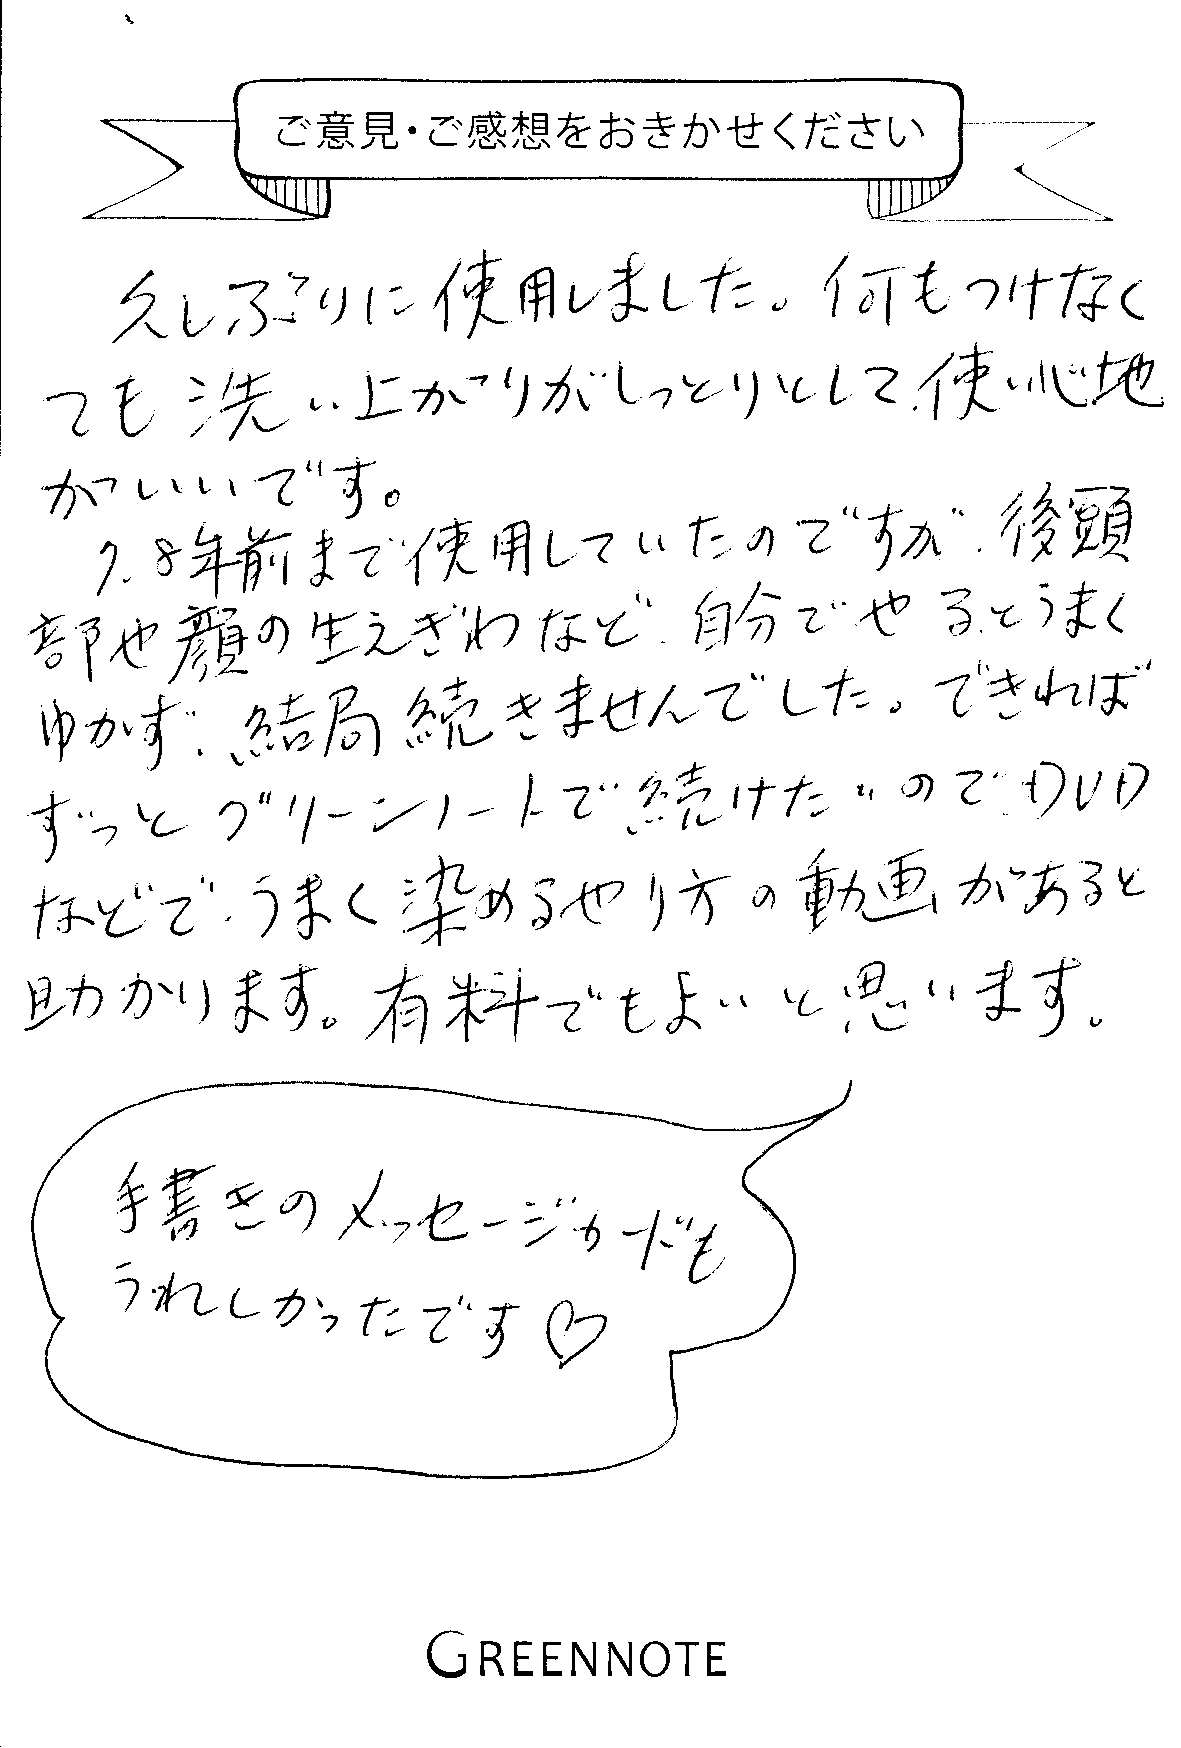 ご意見・ご感想をおきかせください
久しぶりに使用しました。何もつけなく
ても洗い上がりがしっとりとして、使い心地
がいいです。
7、8年前まで使用していたのですが、後頭
部や顔の生えぎわなど、自分でやるとうまく
ゆかず、結局続きませんでした。できれば
ずっとグリーンノートで続けたいので、DVD
などで、うまく染めるやり方の動画があると
助かります。有料でもよいと思います。
手書きのメッセージカードも
うれしかったです♡
GREENNOTE